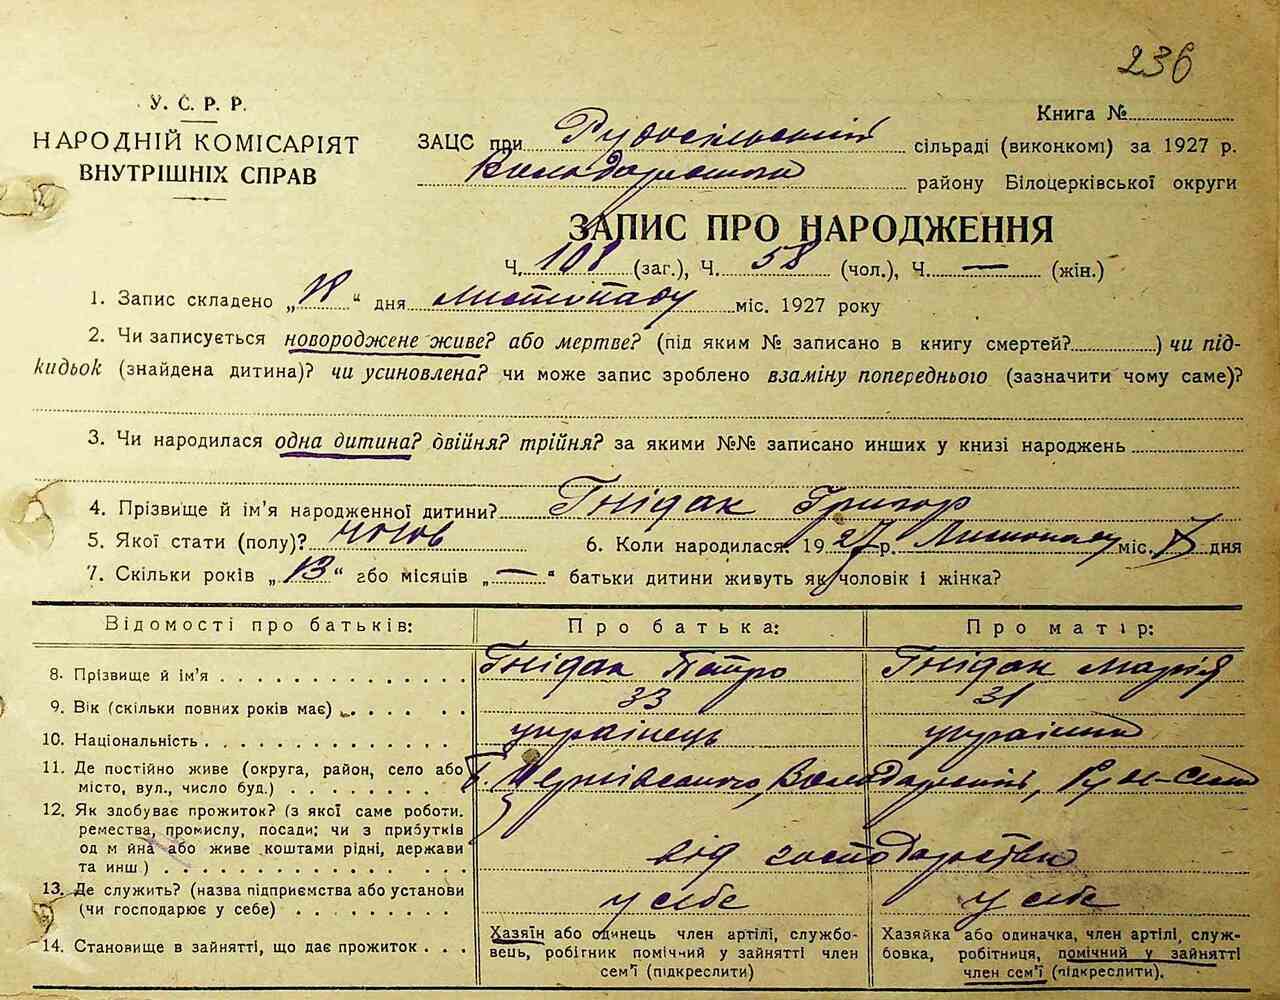 236
У. С. Р. Р.
НАРОДНІЙ КОМІСАРІЯТ
ВНУТРІШНІХ СПРАВ
Книга №
ЗАЦС при Рудосільській сільраді (виконкомі) за 1927 р.
Володарського району Білоцерківської округи
ЗАПИС ПРО НАРОДЖЕННЯ
Ч. 108 (заг.), Ч. 58 (чол.), Ч. — (жін.)
1. Запис складено „ “ дня листопаду міс. 1927 року
2. Чи записується новороджене живе? або мертве? (під яким № записано в книгу смертей? ) чи під-
кидьок (знайдена дитина)? чи усиновлена? чи може запис зроблено взаміну попереднього (зазначити чому саме)?
3. Чи народилася одна дитина? двійня? трійня? за якими №№ записано инших у книзі народжень
4. Прізвище й ім'я народженної дитини? Гнідак Григор
5. Якої стати (полу)? чолов 6. Коли народилася: 1927 р. Листопаду міс. дня
7. Скільки років „13“ або місяців „—“ батьки дитини живуть як чоловік і жінка?
Відомості про батьків: Про батька: Про матір:
8. Прізвище й ім'я Гнідак Петро Гнідак Марія
9. Вік (скільки повних років має) 33 31
10. Національність українець українка
11. Де постійно живе (округа, район, село або
місто, вул., число буд.) Б. Церківського, Володарський, Руде-Село
12. Як здобуває прожиток? (з якої саме роботи.
ремества, промислу, посади; чи з прибутків
од майна або живе коштами рідні, держави
та инш.) від господарства
13. Де служить? (назва підприємства або установи
(чи господарює у себе) у себе у себе
14. Становище в зайнятті, що дає прожиток
Хазяїн або одинець член артілі, службо-
вець, робітник помічний у зайнятті член
сем'ї (підкреслити)
Хазяйка або одиначка, член артілі, служ-
бовка, робітниця, помічний у зайнятті
член сем'ї (підкреслити).